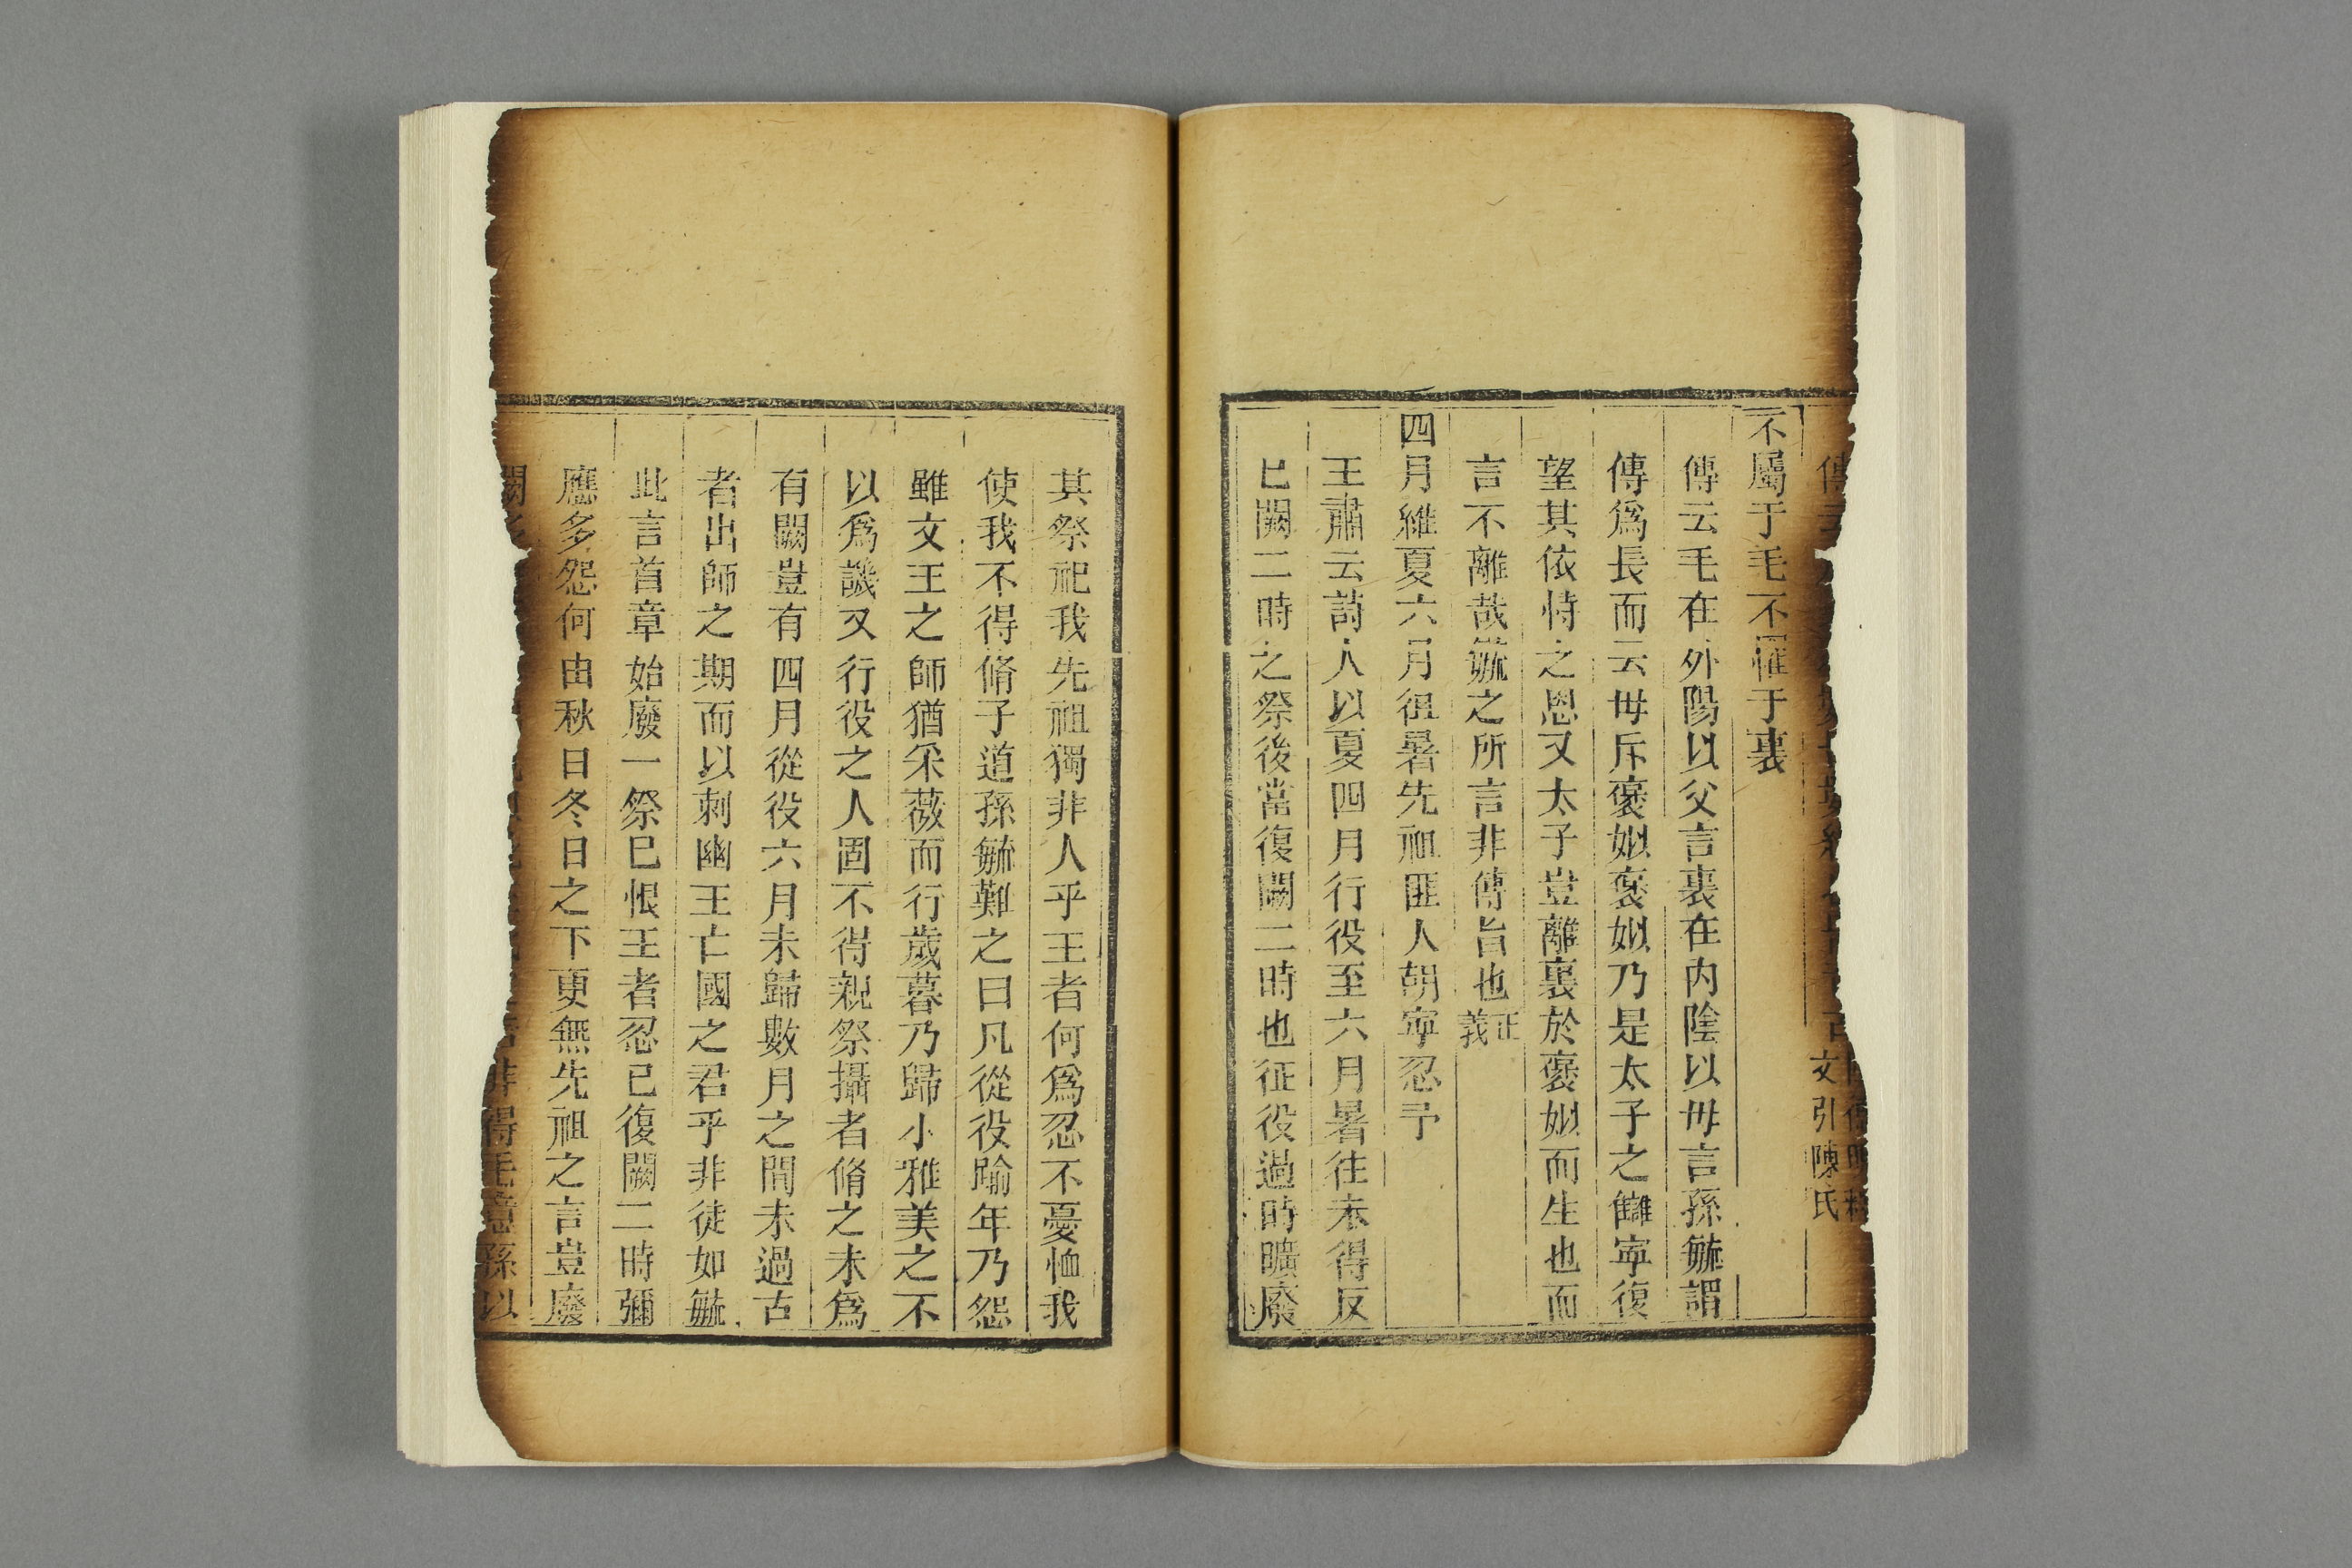 傳
文引陳氏
不屬于毛不罹于裏
傳云毛在外陽以父言裏在內陰以毋言孫毓謂
傳爲長而云毋斥褒姒褒姒乃是太子之讎寧復
望其依恃之恩又太子豈離裏於褒姒而生也而
言不離哉毓之所言非傳旨也正義
四月維夏六月徂暑先祖匪人胡寧忍予
王肅云詩人以夏四月行役至六月暑往未得反
已闕二時之祭後當復闕二時也征役過時曠廢
其祭祀我先祖獨非人乎王者何爲忍不憂恤我
使我不得脩子道孫毓難之曰凡從役踰年乃怨
雖文王之師猶采薇而行歲暮乃歸小雅美之不
以爲譏又行役之人固不得親祭攝者脩之未爲
有闕豈有四月從役六月未歸數月之間未過古
者出師之期而以刺幽王亡國之君乎非徒如毓
此言首章始廢一祭已恨王者忍已復闕二時彌
應多怨何由秋日冬日之下更無先祖之言豈廢
闕
非得毛意孫以